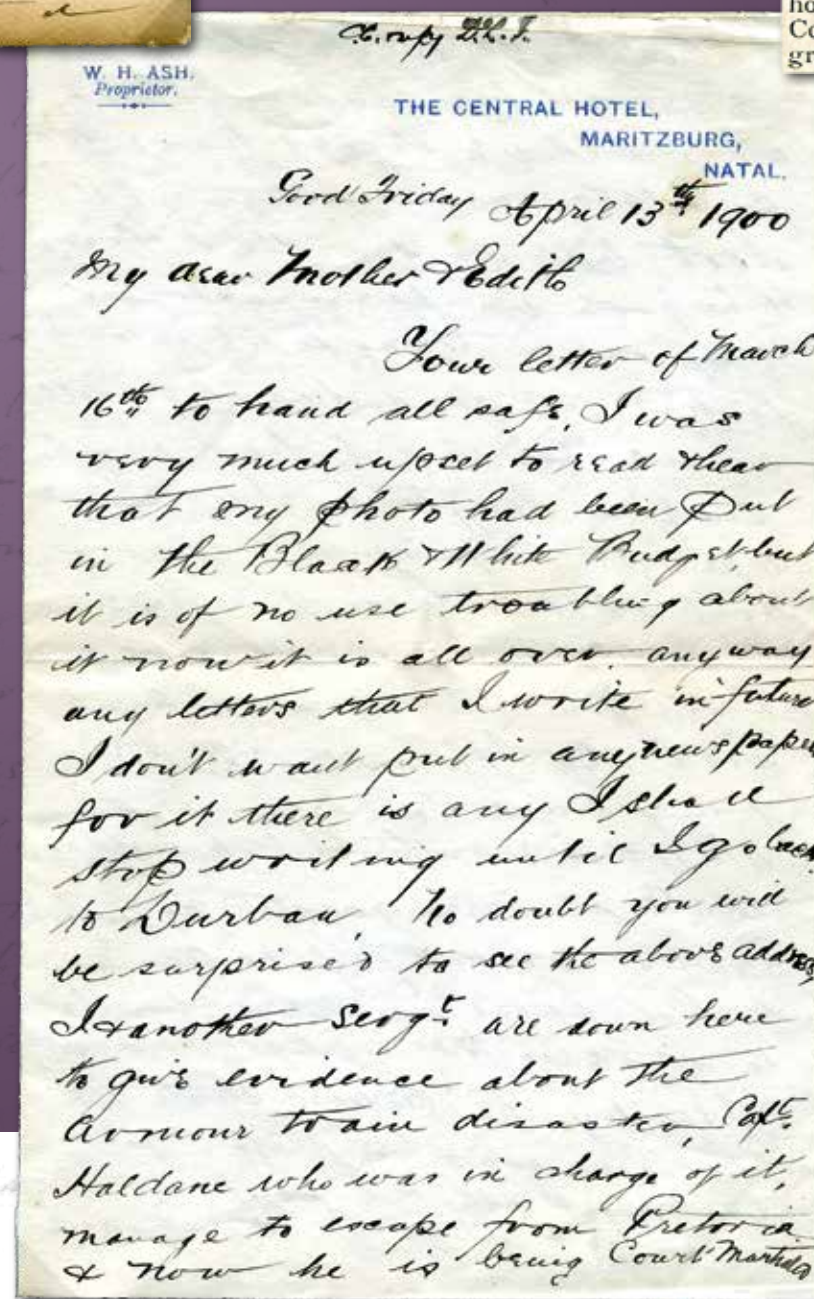 ho
Co
gr
W. H. ASH,
Proprietor.
THE CENTRAL HOTEL,
MARITZBURG,
NATAL.
Good Friday April 13th 1900
My dear Mother & Edith
Your letter of March
16th to hand all safe, I was
very much upset to read & hear
that my photo had been put
in the Black & White Budget, but
it is of no use troubling about
it now it is all over. anyway
any letters that I write in future
I don't want put in any newspaper
for if there is any I shall
stop writing until I go back
to Durban. No doubt you will
be surprised to see the above address,
I & another Sergt. are down here
to give evidence about the
armour train disaster, Capt.
Haldane who was in charge of it,
manage to escape from Pretoria
& now he is being Court Martialed